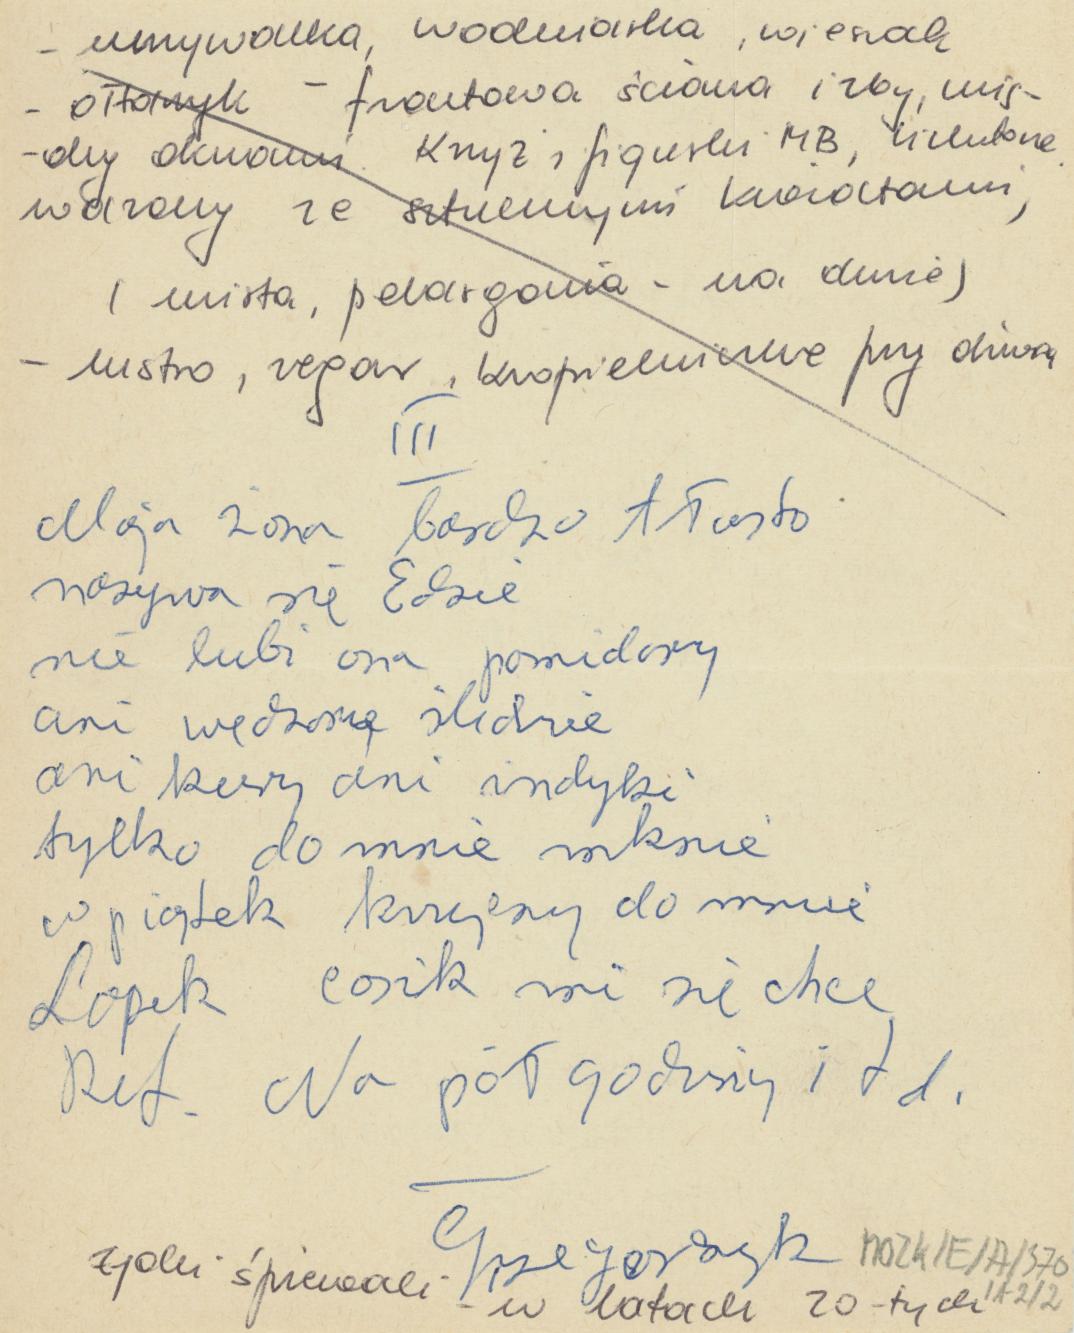 - umywalka, wodniarka, wieszak
- ołtarzyk - frontowa ściana izby, mię-
-dzy oknami. Krzyż i figurki MB,
wazony ze sztucznymi kwiatami,
( mirta, pelargonia - na oknie)
- lustro, zegar, kropielniczka przy drzwiach
III
Moja żona bardzo tłusto
nazywa się Edzie
nie lubi ona pomidory
ani wędzone śledzie
ani kury ani indyki
tylko do mnie mknie
w piątek krzyczy do mnie
Lopek cosik mi się chce
Ref. Na pół godziny i t d.
Grzegorzyk
żydki śpiewali - w latach 20-tych
MOZK/E/A/370
1A2/2